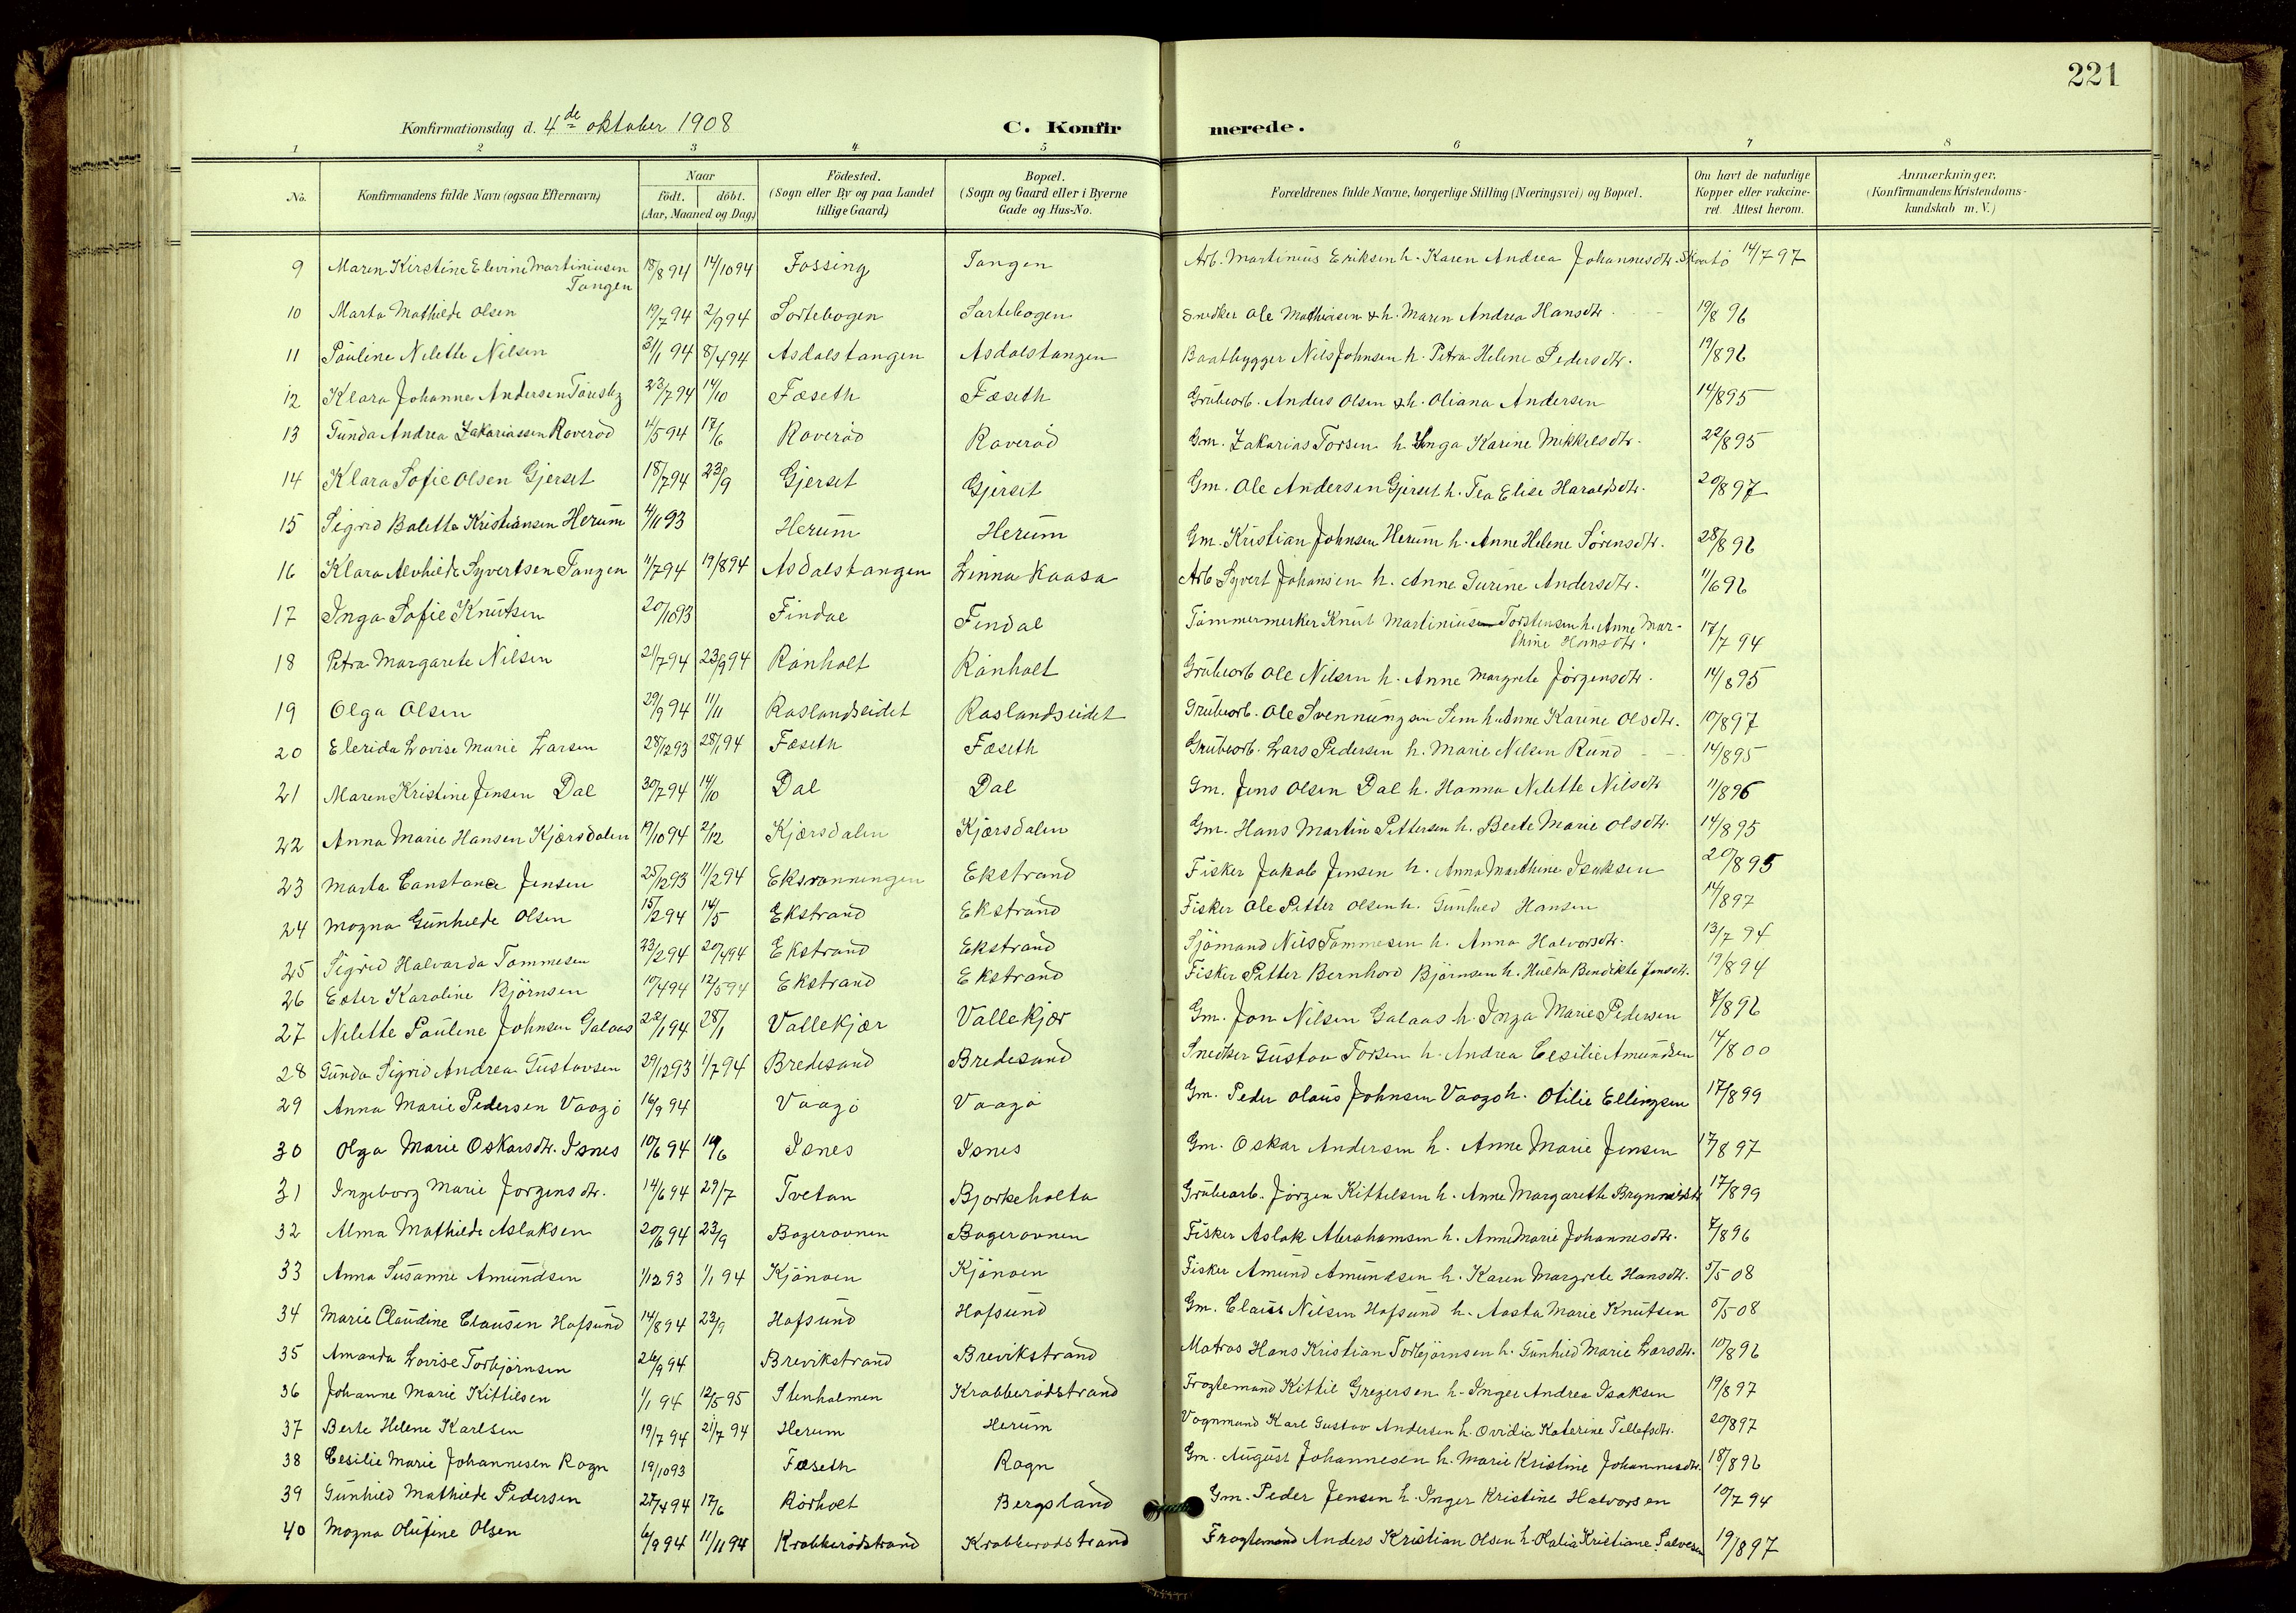 221
Konfirmationsdag d. 4de oktober 1908 C. Konfir merede.
1 2 3 4 5 6 7 8
No. Konfirmandens fulde Navn (ogsaa Efternavn) Naar födt. döbt. (Aar, Maaned og Dag) Födested. (Sogn eller By og paa Landet tillige Gaard) Bopæl. (Sogn og Gaard eller i Byerne Gade og Hus-No. Forældrenes fulde Navne, borgerlige Stilling (Næringsvei) og Bopæl. Om havt de naturlige Kopper eller vakcineret. Attest herom. Anmærkninger. (Konfirmandens Kristendomskundskab m. V.)
9 Maren Kirstine Elevine Martiniusen 18/8 94 14/10 94 Fossing Tangen Arb. Martinius Eriksen h. Karen Andrea Johannesdtr. Skaatö 14/7 97
Tangen
10 Marta Mathilde Olsen 19/7 94 2/9 94 Sortebogen Sartebogen Snedker Ole Mathiasen & h. Maren Andrea Hansdtr. 19/8 96
11 Pauline Nilette Nilsen 31/1 94 8/4 94 Asdalstangen Asdalstangen Baatbygger Nils Johnsen h. Petra Helene Pedersdtr. 19/8 96
12 Klara Johanne Andersen 23/7 94 14/10 Fæseth Fæseth Grubearb. Anders Olsen & h. Oliana Andersen 14/8 95
13 Gunda Andrea Zakariassen Roveröd 11/5 94 17/6 Roveröd Roveröd Gm. Zakarias Torsen h. Inga Karine Mikkelsdtr. 22/8 95
14 Klara Sofie Olsen Gjerset 18/7 94 23/9 Gjerset Gjerset Gm. Ole Andersen Gjerset h. Tea Elise Haraldsdtr. 20/8 97
15 Sigrid Baletta Kristiansen Herum 4/11 93 Herum Herum Gm. Kristian Johnsen Herum h. Anne Helene Sörensdtr. 28/8 96
16 Klara Alvhilde Syvertsen Tangen 11/7 94 19/8 94 Asdalstangen Linna Kaasa Arb. Syvert Johansen h. Anne Gurine Andersdtr. 11/6 96
17 Inga Sofie Knutsen 20/10 93 Findal Findal Tömmermerker Knut Martinius Torstensen h. Anne Mar-
thine Hansdtr. 17/7 94
18 Petra Margarete Nilsen 21/7 94 23/9 94 Rönholt Rönholt Grubearb Ole Nilsen h. Anne Margrete Jörgensdtr. 14/8 95
19 Olga Olsen 29/9 94 11/11 Roslandseidet Roslandseidet Grubearb. Ole Svennungsen Sem h. Anne Karine Olsdtr. 10/8 97
20 Elerida Lovise Marie Larsen 28/12 93 28/1 94 Fæseth Fæseth Grubearb. Lars Pedersen h. Marie Nilsen Rund 14/8 95
21 Maren Kristine Jensen Dal 30/7 94 14/10 Dal Dal Gm. Jens Olsen Dal h. Hanna Nilette Nilsdtr 11/8 96
22 Anna Marie Hansen Kjærsdalen 19/10 94 2/12 Kjærsdalen Kjærsdalen Gm. Hans Martin Pettersen h. Berte Marie Olsdtr. 14/8 95
23 Marta Constance Jensen 25/12 93 11/2 94 Eksrønningen Ekstrand Fisker Jakob Jensen h. Anna Marthine Isaksen 20/8 95
24 Magna Gunhilde Olsen 15/2 94 14/5 Ekstrand Ekstrand Fisker Ole Petter Olsen h. Gunhild Hansen 14/8 97
25 Sigrid Halvarda Tommesen 23/2 94 20/4 94 Ekstrand Ekstrand Sjömand Nils Tommesen h. Anna Halvorsdtr. 13/7 94
26 Ester Karoline Björnsen 10/4 94 12/5 94 Ekstrand Ekstrand Fisker Petter Bernhard Björnsen h. Hulda Bendikte Jensdtr. 19/8 94
27 Nilette Pauline Johnsen Galaas 22/1 94 28/1 Vallekjær Vallekjær Gm. Jon Nilsen Galaas h. Inga Marie Pedersen 7/8 96
28 Gunda Sigrid Andrea Gustavsen 29/12 93 1/7 94 Bredesand Bredesand Snedker Gustav Torsen h. Andrea Cesilie Amundsen 14/8 00
29 Anna Marie Pedersen Vaagö 16/9 94 Vaagö Vaagö Gm. Peder Olaus Johnsen Vaagö h. Otilie Ellingsen 17/8 99
30 Olga Marie Oskarsdtr. Isnes 10/6 94 Isnes Isnes Gm. Oskar Andersen h. Anne Marie Jensen 17/8 97
31 Ingeborg Marie Jörgensdtr. 14/6 94 29/7 Tvetan Bjorkeholta Grubearb. Jörgen Kittelsen h. Anne Margarethe 17/8 99
32 Alma Mathilde Aslaksen 20/6 94 23/9 Bogerovnen Bogerovnen Fisker Aslak Abrahamsen h. Anne Marie Johannesdtr. 7/8 96
33 Anna Susanne Amundsen 1/12 93 1/1 94 Kjönöen Kjönöen Fisker Amund Amundsen h. Karen Margrete Hansdtr. 5/5 08
34 Marie Claudine Clausen Hafsund 14/8 94 23/9 Hafsund Hafsund Gm. Claus Nilsen Hafsund h. Aasta Marie Knutsen 5/5 08
35 Amanda Lovise Torbjörnsen 26/9 94 Brevikstrand Brevikstrand Matros Hans Kristian Torbjörnsen h. Gunhild Marie Larsdtr. 10/8 96
36 Johanne Marie Kittilsen 1/1 94 12/5 95 Stenholmen Krabberödstrand Fragtemand Kittil Gregersen h. Inger Andrea Isaksen 19/8 97
37 Berte Helene Karlsen 19/7 94 21/7 94 Herum Herum Vognmand Karl Gustav Andersen h. Ovidia Katerine Tellefsdtr. 20/8 97
38 Cesilie Marie Johannesen Rogn 19/10 93 Fæseth Rogn Gm. August Johannesen h. Marie Kristine Johannesdtr. 18/8 96
39 Gunhild Mathilde Pedersen 27/4 94 17/6 Rörholt Bergsland Gm. Peder Jensen h. Inger Kristine Halvorsen 10/7 94
40 Magna Olufine Olsen 6/9 94 11/11 94 Krabberödstrand Krabberödstrand Fragtemand Anders Kristian Olsen h. Olalia Kristiane Salvesen 19/8 97